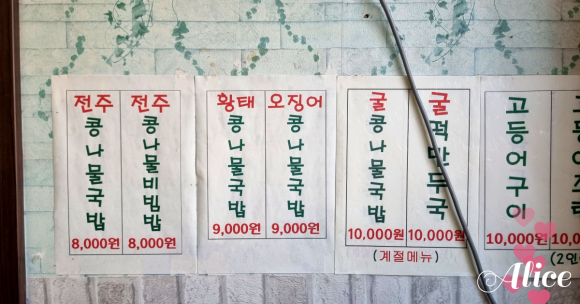 전주
콩나물국밥
8,000원
전주
콩나물비빔밥
8,000원
황태
콩나물국밥
9,000원
오징어
콩나물국밥
9,000원
굴
콩나물국밥
10,000원
굴
떡만두국
10,000원
(계절메뉴)
고등어구이
10,000원
(2인
Alice